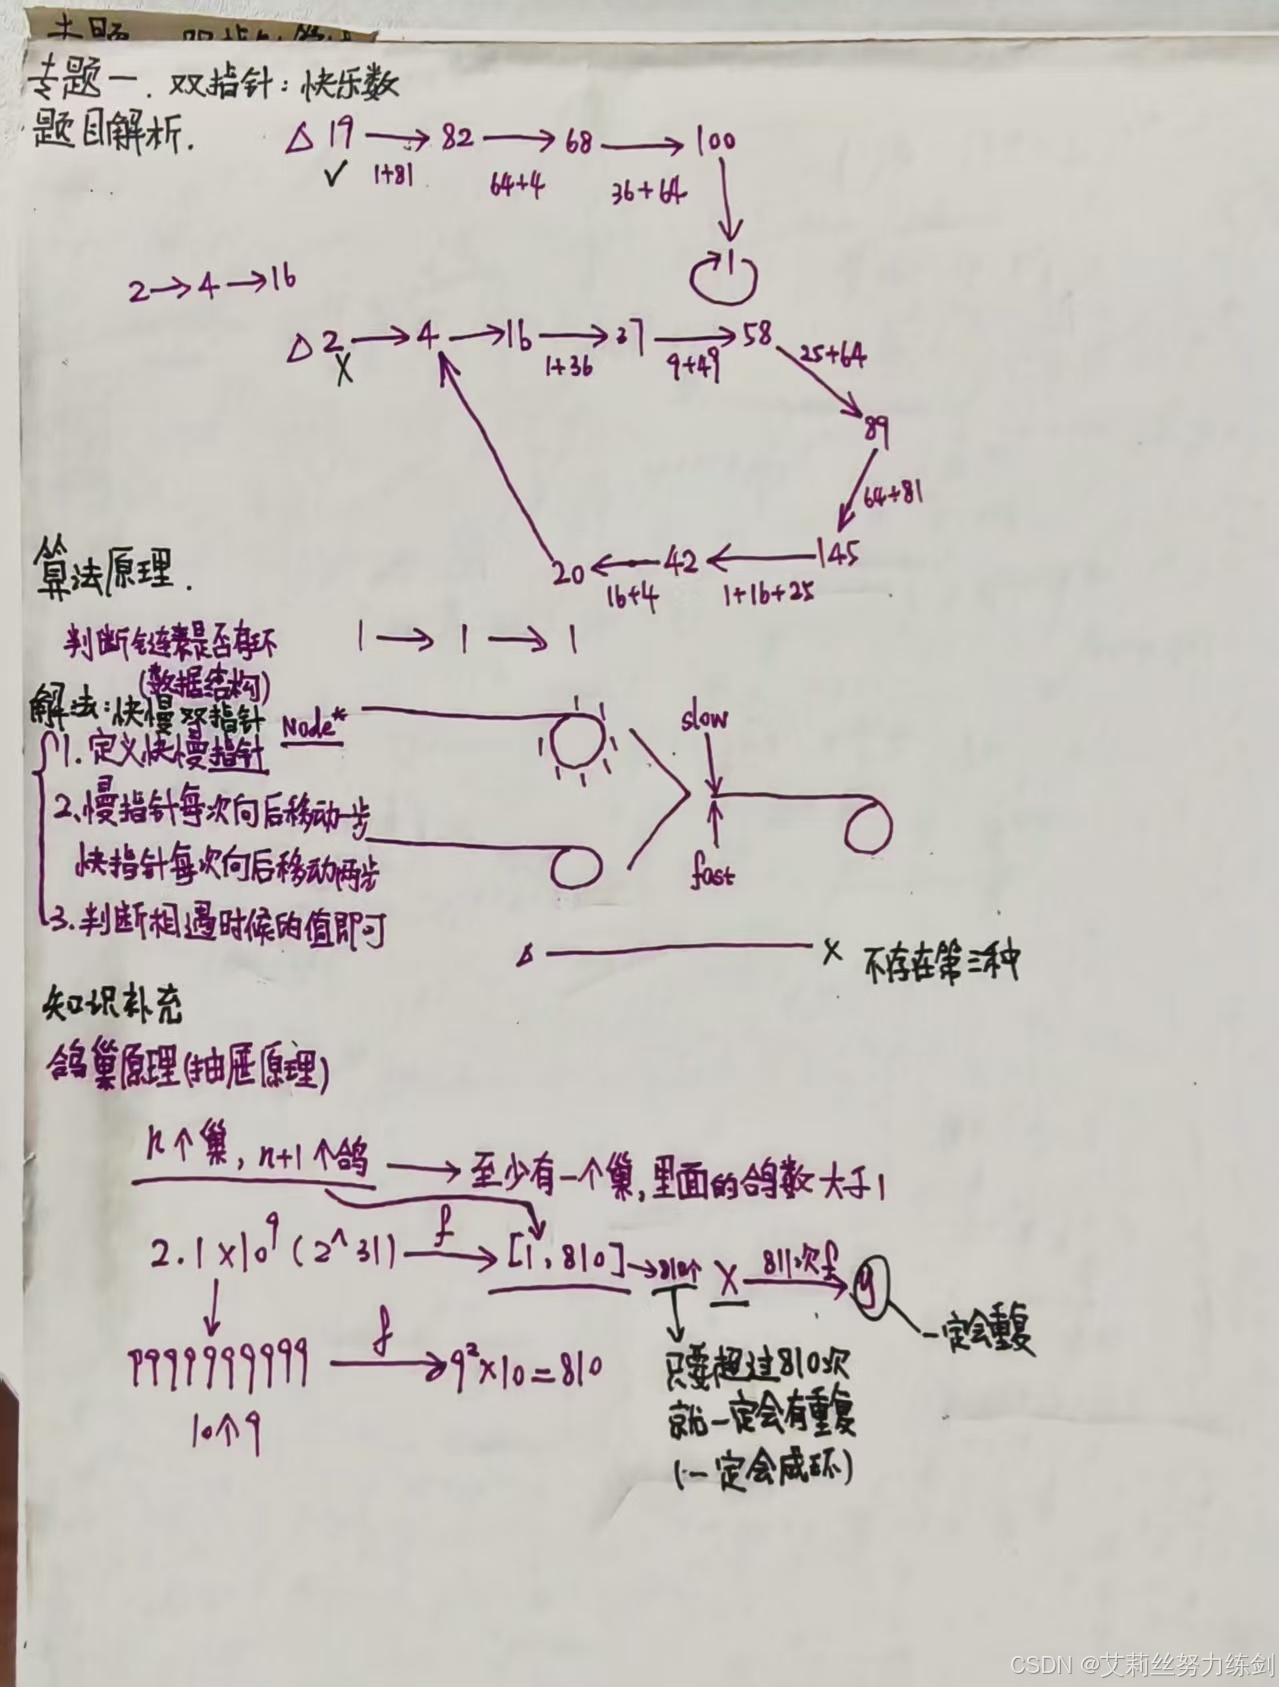 专题一.双指针:快乐数
题目解析.
△ 19 → 82 → 68 → 100
✓ 1+81 64+4 36+64
1
2→4→16
△ 2 → 4 → 16 → 37 → 58
X 1+36 9+49 25+64
89
64+81
20 ← 42 ← 145
16+4 1+16+25
算法原理.
判断链表是否有环
1 → 1 → 1
(数据结构)
解法:快慢双指针
Node*
slow
1.定义快慢指针
2.慢指针每次向后移动一步
快指针每次向后移动两步
fast
3.判断相遇时候的值即可
△ X 不存在第三种
知识补充
鸽巢原理(抽屉原理)
n个巢,n+1个鸽 → 至少有一个巢,里面的鸽数大于1
2.1×10^9 (2^31) f → [1,810] → 810个 X 811次f → y
一定会重复
9999999999 f → 9²×10=810
10个9
只要超过810次
就一定会有重复
(一定会成环)
CSDN @艾莉丝努力练剑